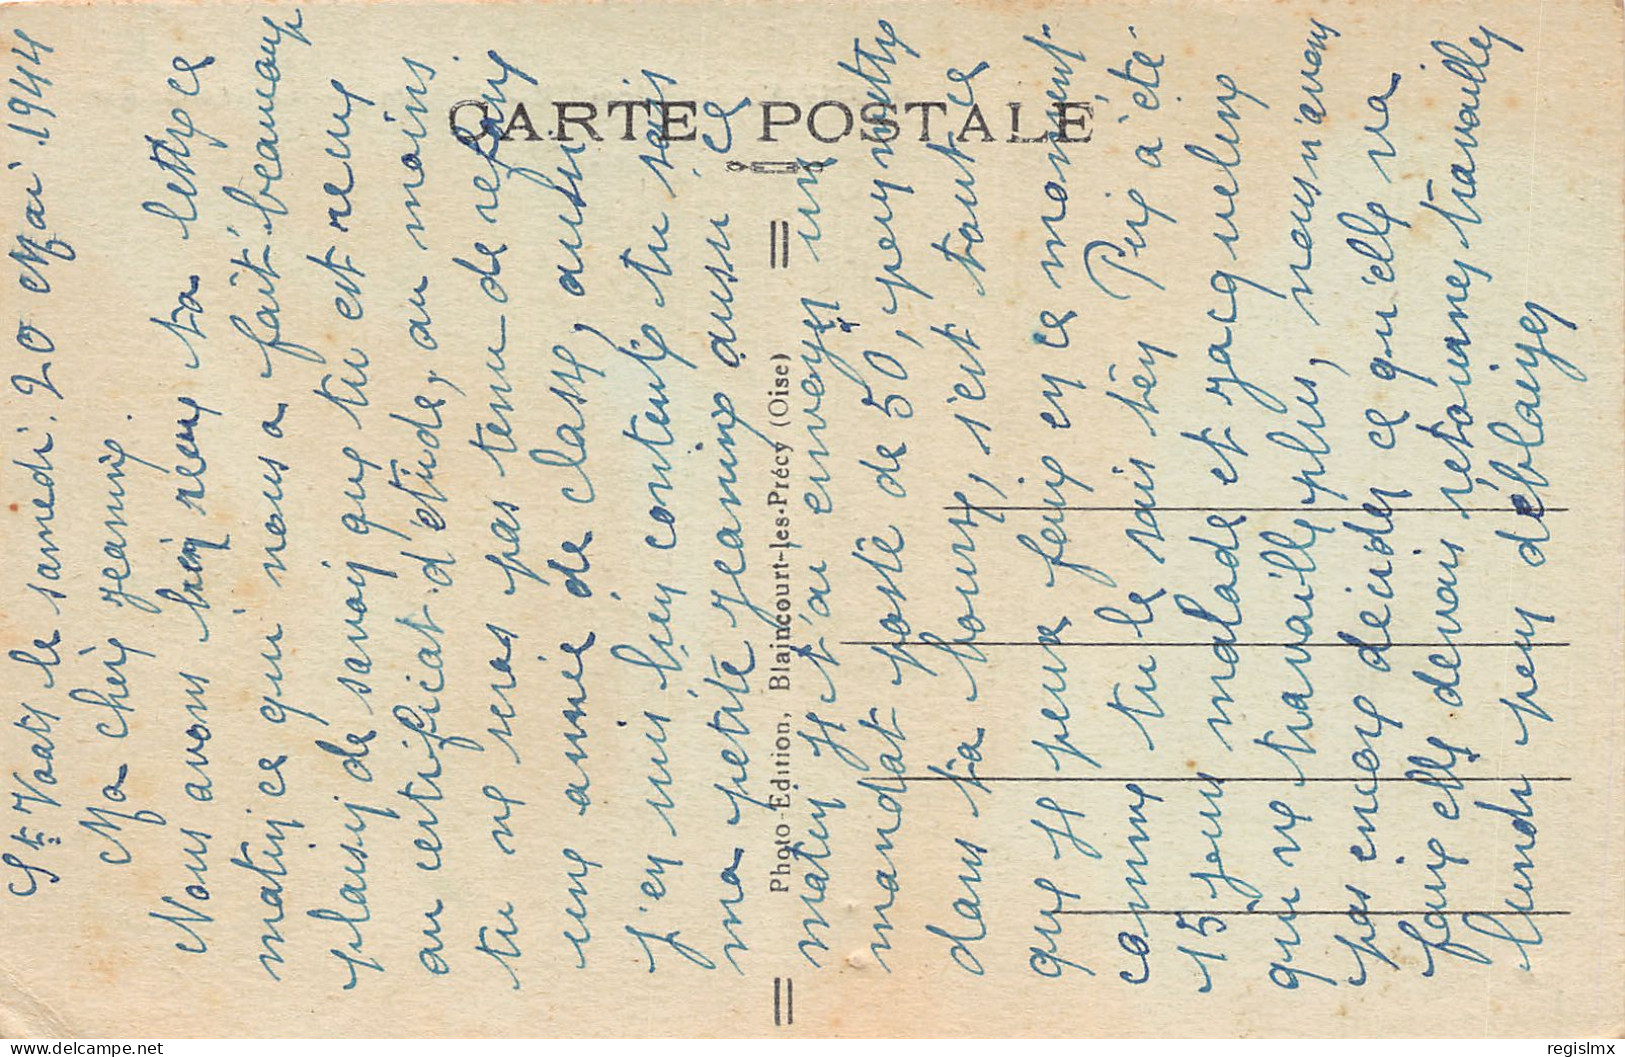 CARTE POSTALE
Photo-Edition, Blaincourt-les-Précy (Oise)
St Vast le samedi 20 Mai 1944
Ma chère Jeannine.
Nous avons bien reçu ta lettre ce
matin ce qui nous a fait beaucoup
plaisir de savoir que tu est reçu
au certificat d'étude, au moins
tu ne seras pas tenu de refaire
une année de classe, aussi
j'en suis bien contente tu sais
ma petite Jeannine aussi ce
matin je t'ai envoyer un
mandat poste de 50, pour mettre
dans ta bourse, s'est tout ce
que je peux faire en ce moment
comme tu le sais bien a été
15 jours malade et Jacqueline
qui ne travaille plus, nous n'avons
pas encore décider ce qu'elle va
faire elle devais retourner travailler
lundi pour déblaiyer
delcampe.net
regislmx